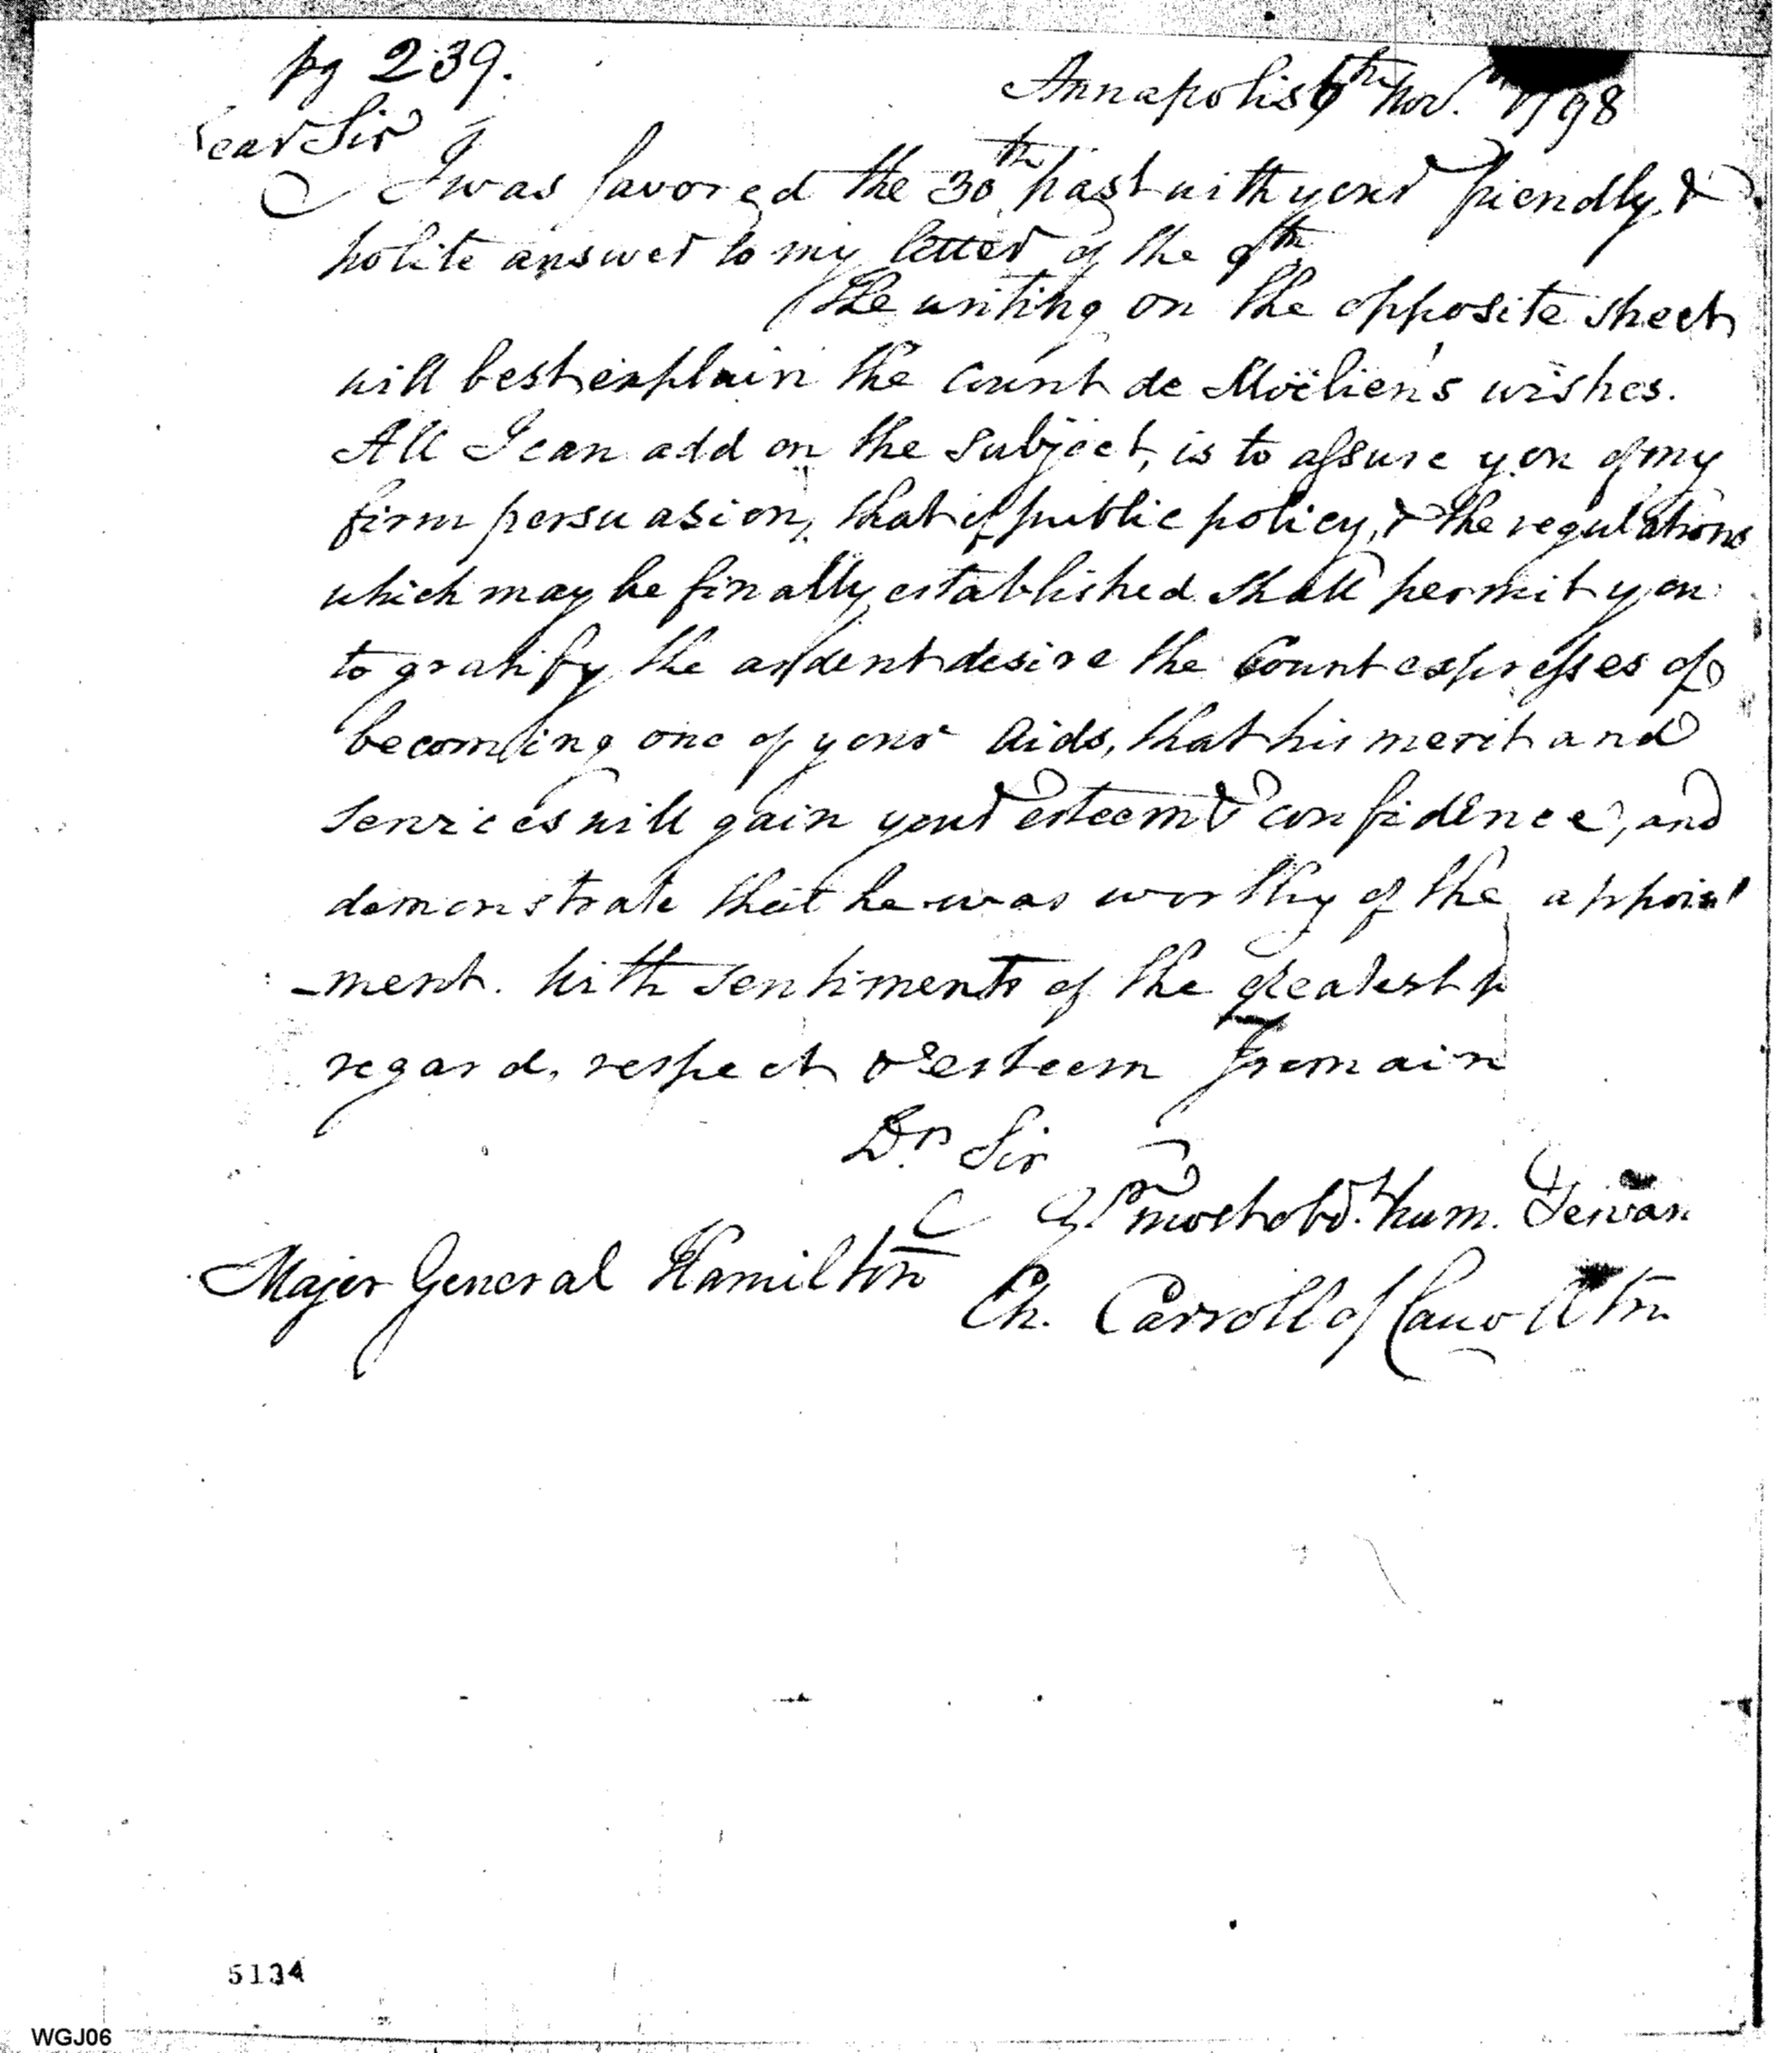 pg 239.
Annapolis 6th Nov. 1798
Dear Sir
I was favored the 30th past with your friendly &
polite answer to my letter of the 9th
The writing on the opposite sheet
will best explain the Count de Moëlien's wishes.
All I can add on the subject, is to assure you of my
firm persuasion, that if public policy, & the regulations
which may be finally established shall permit you
to gratify the ardent desire the Count expresses of
becoming one of your Aids, that his merit and
services will gain your esteem & confidence, and
demonstrate that he was worthy of the appoint
-ment. With sentiments of the greatest
regard, respect & esteem I remain
Dr. Sir
Yr. most obdt. hum. Servan
Major General Hamilton
Ch. Carroll of Carrollton
5134
WGJ06